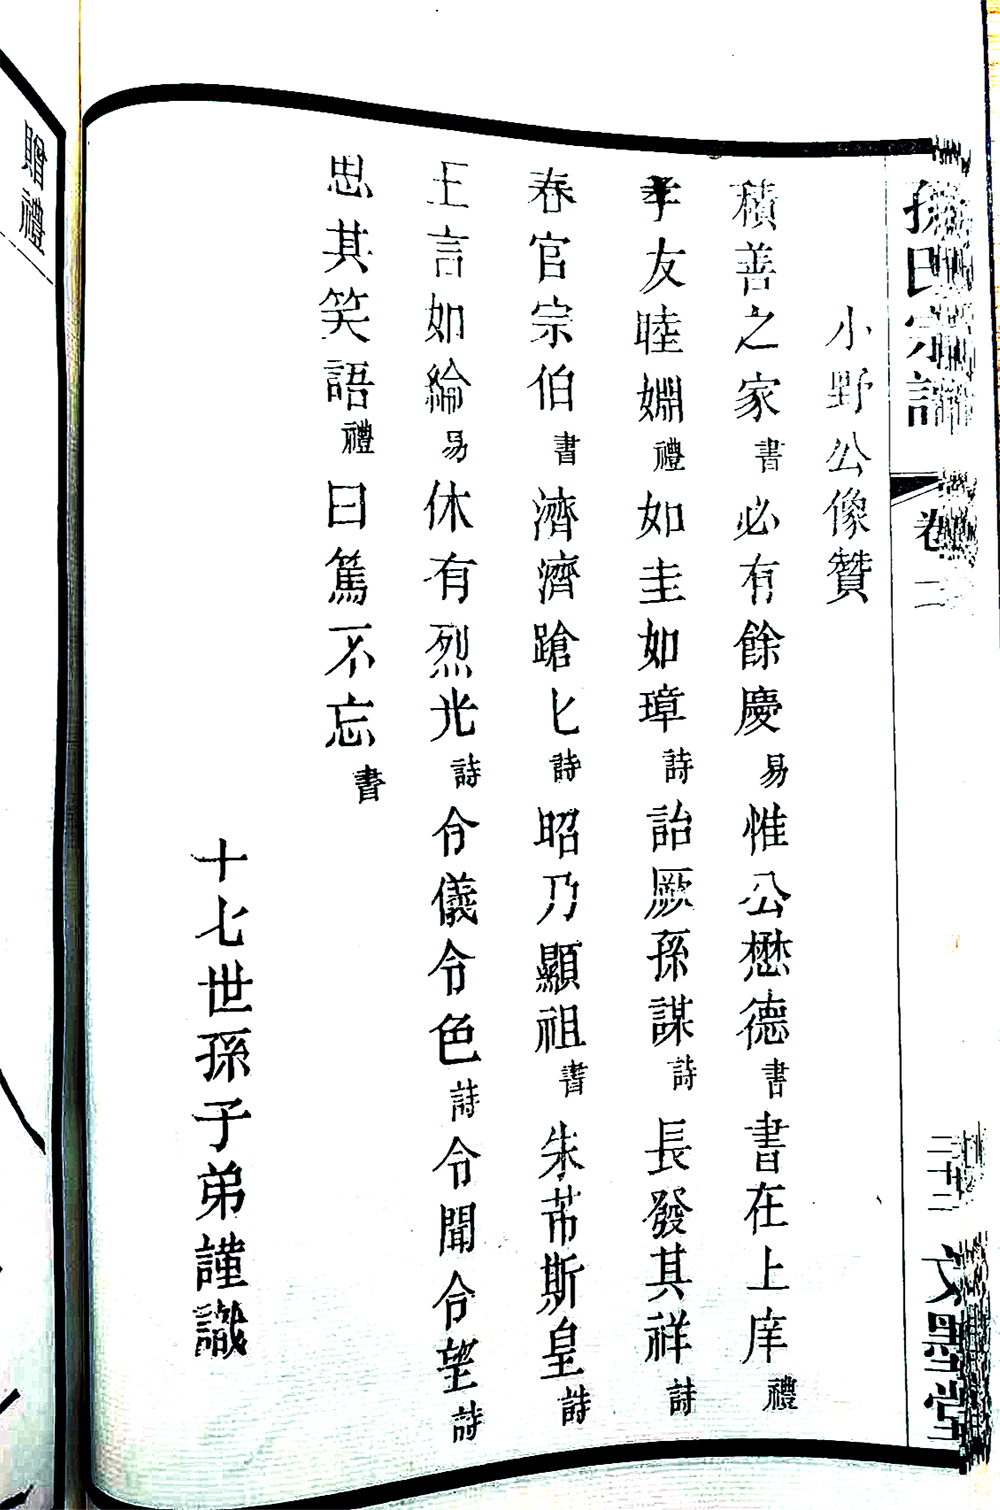 孫氏宗譜
卷二
二十二
文墨堂
小野公像贊
積善之家書必有餘慶易惟公懋德書書在上庠禮
孝友睦婣禮如圭如璋詩詒厥孫謀詩長發其祥詩
春官宗伯書濟濟蹌匕詩昭乃顯祖書朱芾斯皇詩
王言如綸易休有烈光詩令儀令色詩令聞令望詩
思其笑語禮曰篤不忘書
十七世孫子弟謹識
贈禮